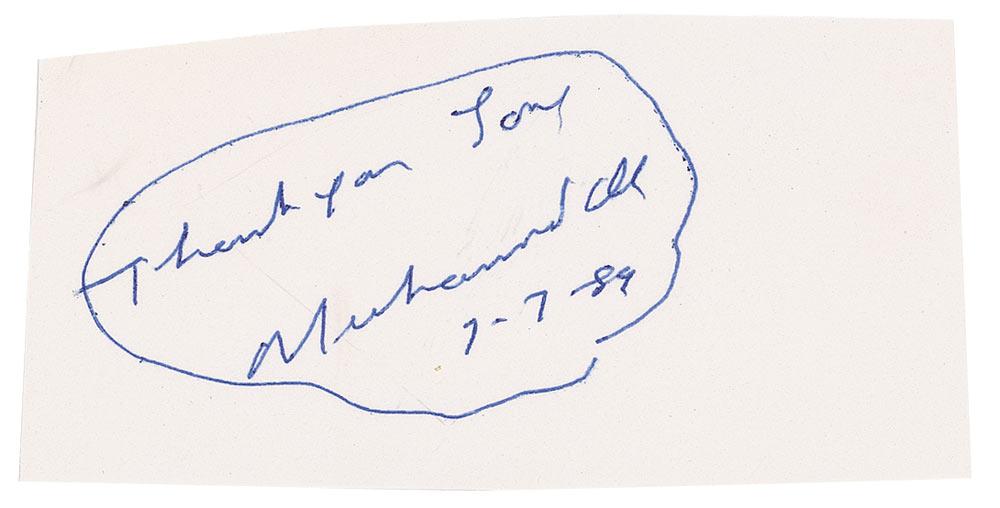 Thank you Tony
Muhammad Ali
7-7-89